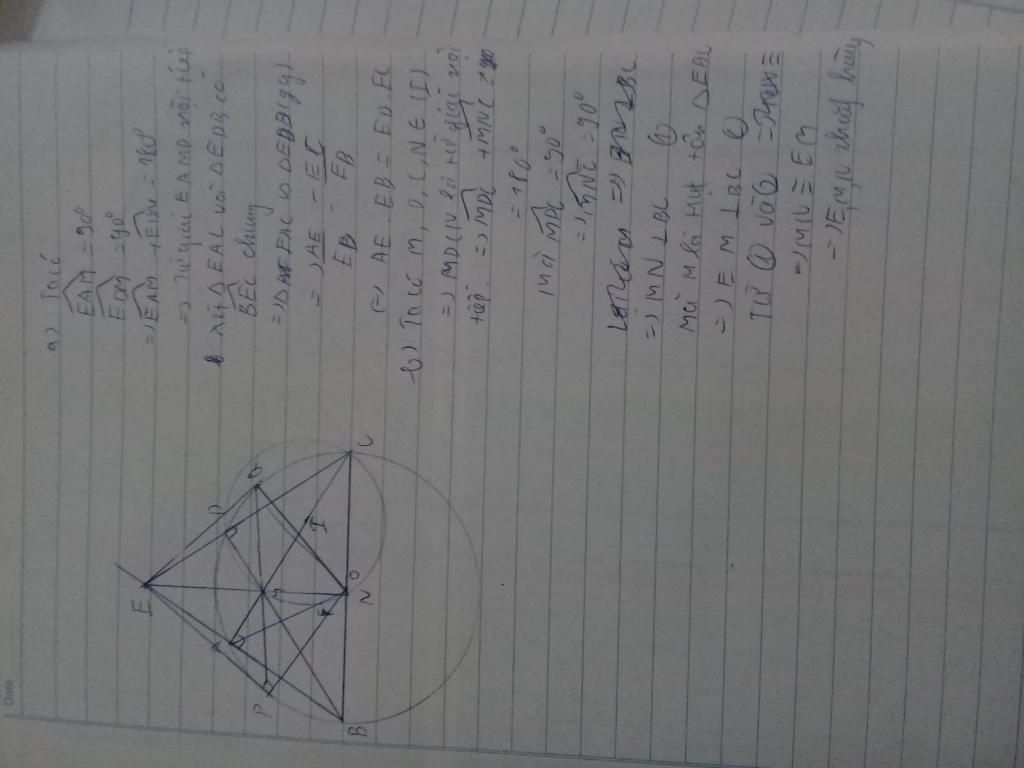 Date
a) Ta có
EAM = 90°
EDM = 90°
=> EAM + EDM = 180°
=> Tứ giác EAMD nội tiếp
Xét Δ EAC và Δ EDB có
BEC chung
=> EAC ∽ EDB (gg)
=> AE = EC
ED EB
(=) AE . EB = ED . EC
b) Ta có M, D, C, N ∈ (I)
=> MDCN là tứ giác nội
tiếp => MDC + MNC =
= 180°
mà MDC = 90°
=> MNC = 90°
=> MN ⊥ BC ①
mà M là trực tâm Δ EBC
=> EM ⊥ BC ②
Từ ① và ② =>
=> MN ≡ EM
=> E, M, N thẳng hàng
E
A
D
P
M
I
B
N
O
C